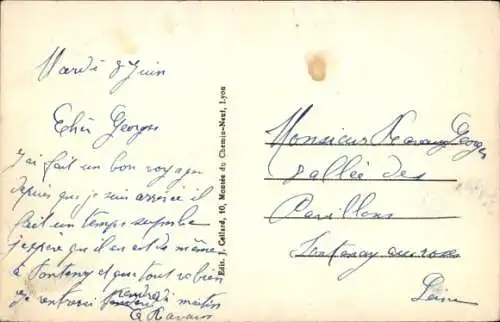 Mardi 8 Juin
Cher Georges
J'ai fait un bon voyage
depuis que je suis arrivée il
fait un temps superbe
j'espère qu'il en est de même
à Fontenay et que tout va bien
je rentrerai vendredi matin
Edit. J. Cellard, 10, Montée du Chemin-Neuf, Lyon
Monsieur Georges
allée des
Pavillons
Fontenay aux roses
Seine